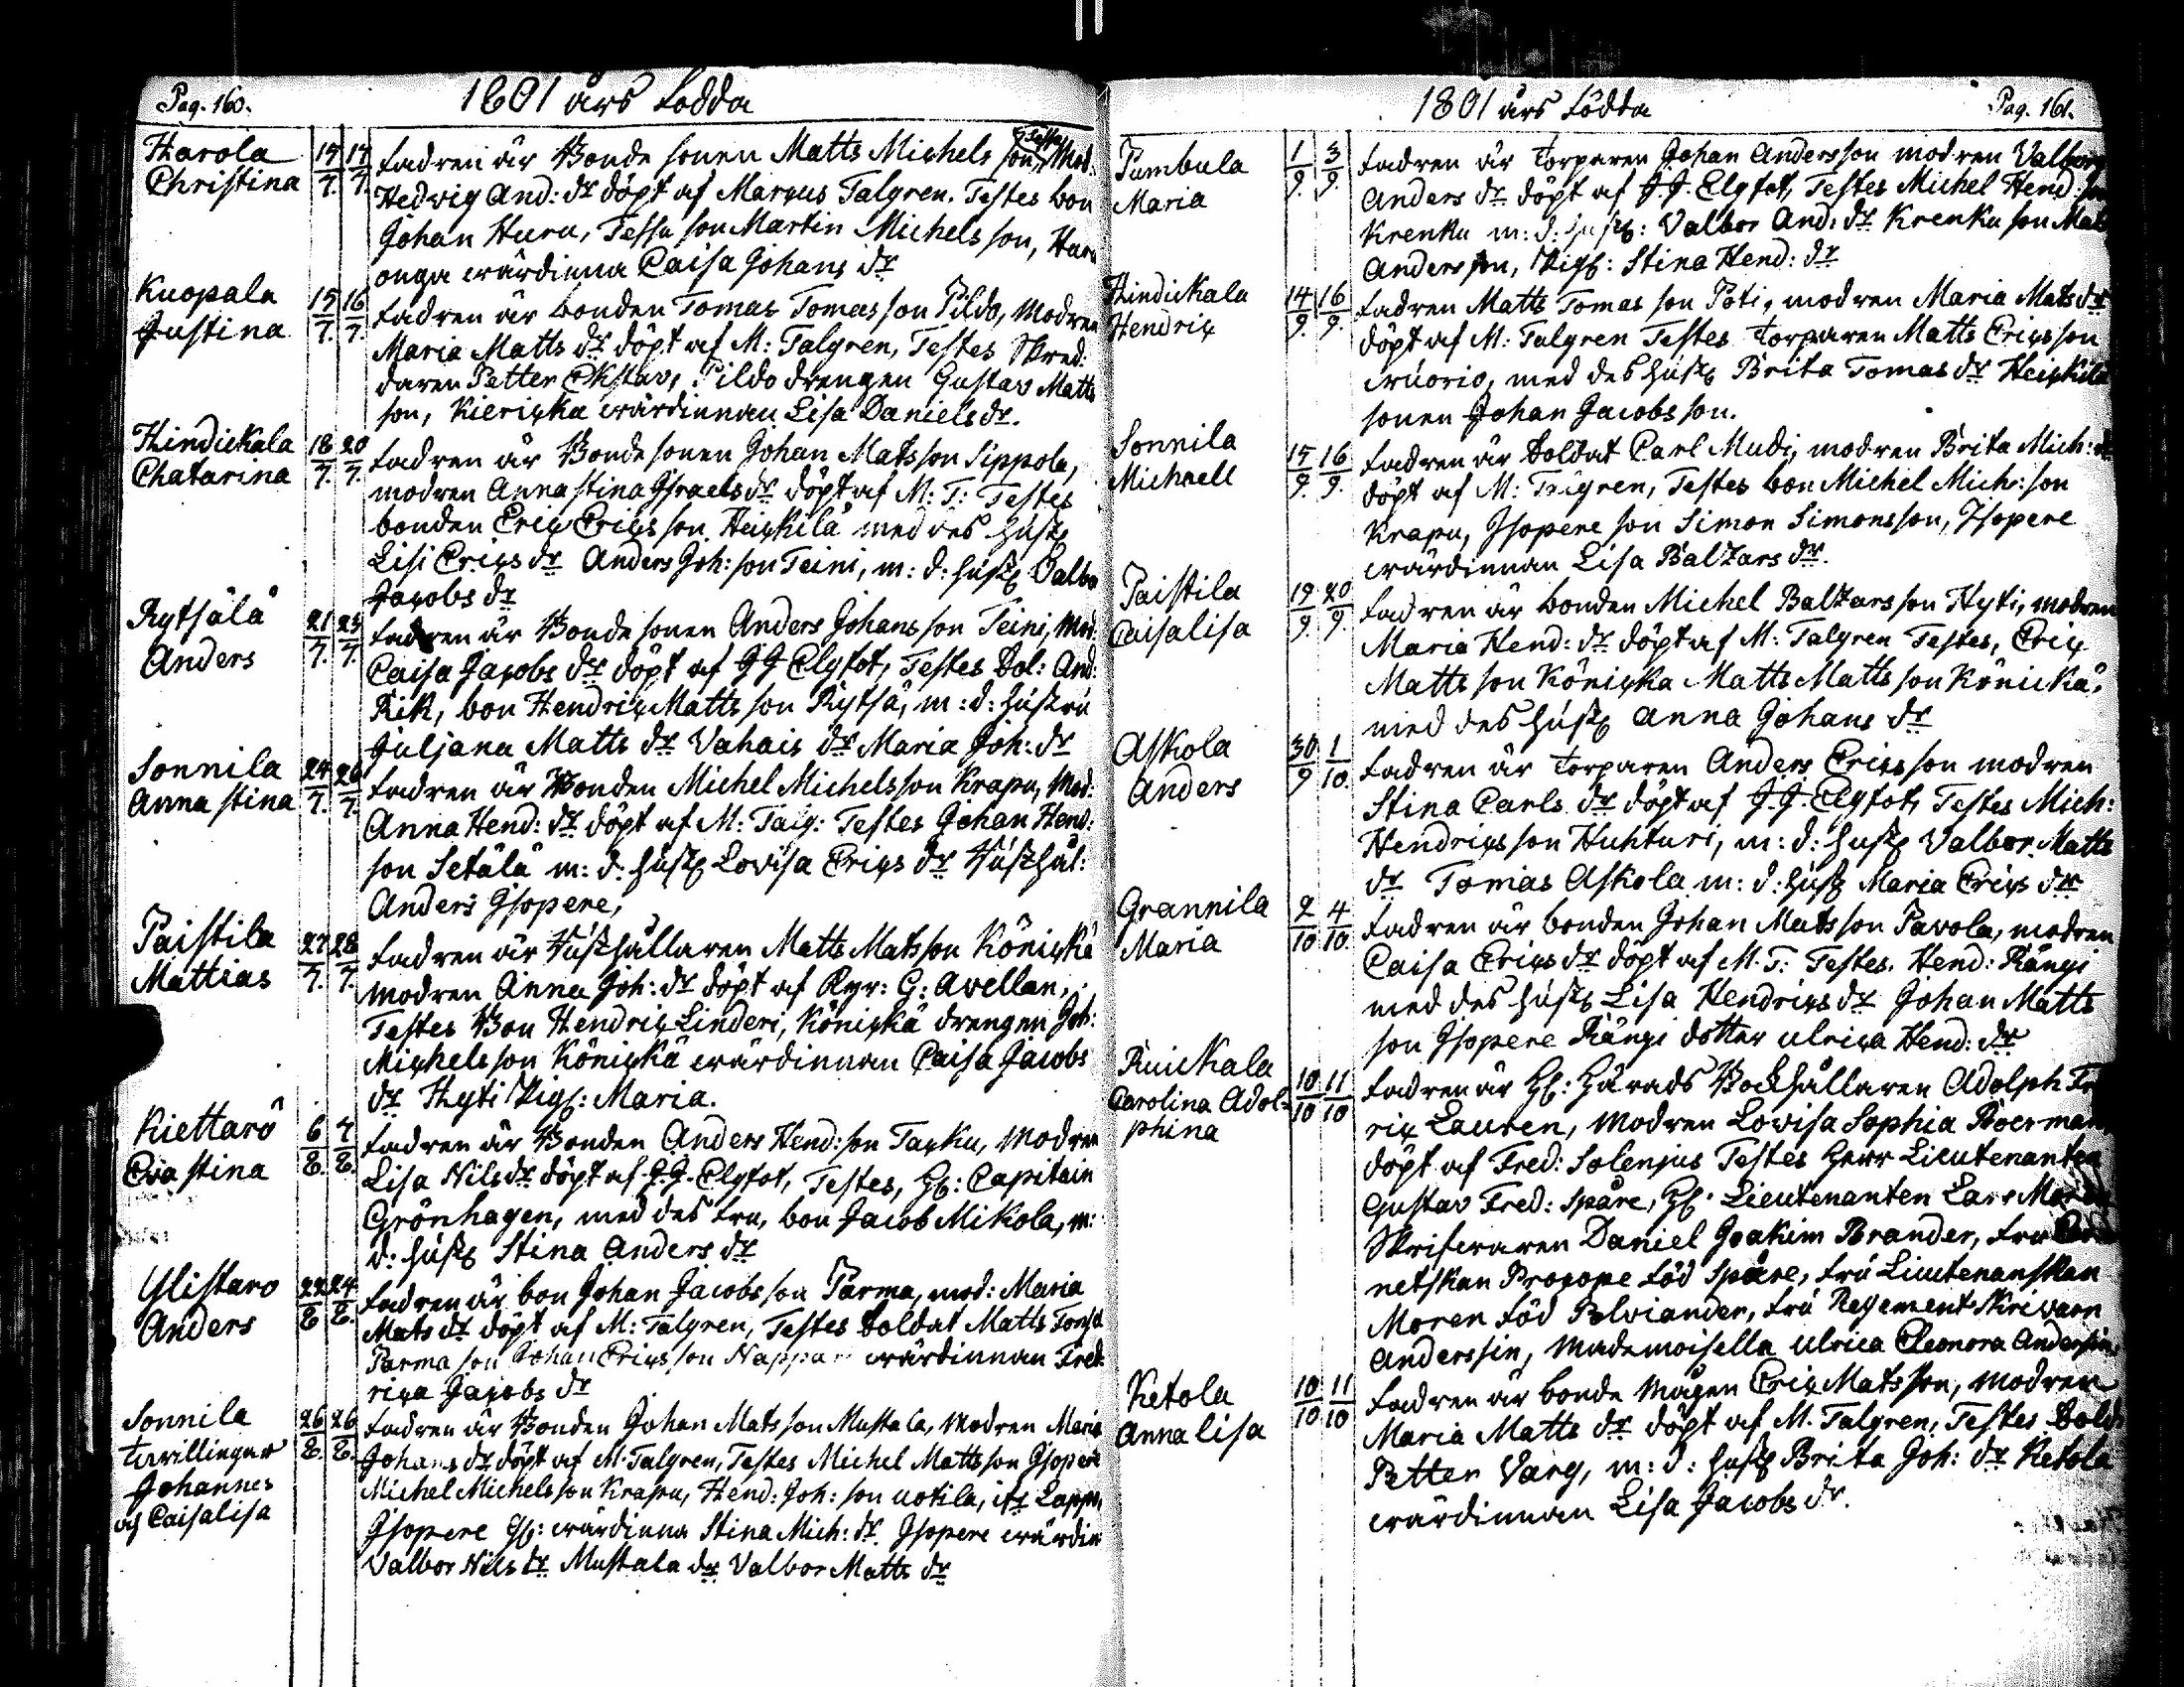 Pag. 160.
1801 års Födda
Harola
Christina
14/7. 17/7.
Fadren är Bonde sonen Matts Michels son, Mod:
Hedvig And: dr döpt af Marcus Talgren. Testes bon
Johan Huru, Tessu son Martin Michels son, Huru
onga wärdinna Caisa Johans dr
Kuopala
Justina
15/7. 16/7.
Fadren är bonden Tomas Tomas son Pildo, Modren
Maria Matts dr döpt af M: Talgren, Testes Skred:
daren Petter Ekstav, Pildo drengen Gustav Matts
son, Kiericka wärdinnan Lisa Daniels dr.
Hindickala
Chatarina
18/7. 20/7.
Fadren är Bonde sonen Johan Mats son Sippola,
modren Anna stina Israels dr döpt af M: T: Testes
bonden Eric Erics son Heickilä med des hust
Lisi Erics dr Anders Joh: son Teini, m: d: hust Valbo
Jacobs dr
Rytsälä
Anders
21/7. 23/7.
Fadren är Bonde sonen Anders Johans son Teini, Mod:
Caisa Jacobs dr döpt af J J Elgfot, Testes Sol: And:
Rik, bon Hendric Matts son Rytsä, m: d: hustru
Juljana Matts dr Vahais dr Maria Joh: dr
Sonnila
Anna stina
24/7. 26/7.
Fadren är Bonden Michel Michels son Krapu, Mod:
Anna Hend: dr döpt af M: Talg: Testes Johan Hend:
son Setälä m: d: hust Lovisa Erics dr Rusthål:
Anders Isopere,
Paistila
Mattias
27/7. 28/7.
Fadren är Rusthållaren Matts Mats son Könickä
modren Anna Joh: dr döpt af Rgr: G: Avellan,
Testes Bon Hendric Linderi, Könickä drengen Joh:
Michels son Könickä wärdinnan Caisa Jacobs
dr Hyti Pig: Maria.
Kiettarö
Eva stina
6/8. 7/8.
Fadren är Bonden Anders Hend: son Tacku, Modren
Lisa Nils dr döpt af J. J. Elgfot, Testes, H: Capitain
Grönhagen, med des fru, bon Jacob Mikola, m:
d: hust Stina Anders dr
Ylistaro
Anders
22/8 24/8.
Fadren är bon Johan Jacobs son Parma, mod: Maria
Mats dr döpt af M: Talgren, Testes Soldat Matts
Parma son Johan Erics son Nappari wärdinnan Fred
rica Jacobs dr
Sonnila
twillingar
Johannes
och Caisalisa
26/8. 26/8.
Fadren är Bonden Johan Mats son Mustala, Modren Maria
Johans dr döpt af M. Talgren, Testes Michel Matts son Isopere
Michel Michels son Krapu, Hend: Joh: son Uotila, Lapp
Isopere wärdinna Stina Mich: dr. Isopere wärdin
Valbor Nils dr Mustala dr Valbor Matts dr
1801 års Födda
Pag. 161.
Pambula
Maria
1/9. 3/9.
Fadren är Torparen Johan Anders son modren Valborg
Anders dr döpt af J. J. Elgfot, Testes Michel Hend: son
Krenku m: d: hust: Valbor And: dr Krenku son Mats
Anders son, Pig: Stina Hend: dr
Hindickala
Hendric
14/9. 16/9.
Fadren Matts Tomas son Poti, modren Maria Mats dr
döpt af M: Talgren Testes Torparen Matts Erics son
wuorio, med des hust Brita Tomas dr Heickilä
sonen Johan Jacobs son.
Sonnila
Michaell
15/9. 16/9.
Fadren är Soldat Carl Mudi, modren Brita Mich: dr
döpt af M: Talgren, Testes bon Michel Mich: son
Krapu, Isopere son Simon Simons son, Isopere
wärdinnan Lisa Baltzars dr.
Paistila
Caisalisa
19/9. 20/9.
Fadren är bonden Michel Baltzars son Hyti, modren
Maria Hend: dr döpt af M: Talgren Testes, Eric
Matts son Könicka Matts Matts son Könickä,
med des hust Anna Johans dr
Askola
Anders
30/9 1/10.
Fadren är Torparen Anders Erics son modren
Stina Carls dr döpt af J. J. Elgfot, Testes Mich:
Hendrics son Huhturi, m: d: hust Valbor Matts
dr Tomas Askola m: d: hust Maria Erics dr
Grannila
Maria
2/10 4/10
Fadren är bonden Johan Mats son Pavola, modren
Caisa Erics dr döpt af M. T: Testes. Hend: Rängi
med des hust Lisa Hendrics dr Johan Matts
son Isopere Rängi dotter Ulrica Hend: dr
Ruickala
Carolina Adol-
phina
10/10 11/10
Fadren är H: Härads Bockhållaren Adolph Fred
ric Lauren, Modren Lovisa Sophia Boerman
döpt af Fred: Solenius Testes Herr Lieutenanten
Gustav Fred: Spåre, H: Lieutenanten Lars Moren
Skrifwaren Daniel Joakim Brander, Fru Cor
netskan Procope född Spåre, fru Lieutenanskan
Moren född Polviander, fru Regements Skrivarn
Anderssin, Mademoisella Ulrica Eleonora Anderssin
Ketola
Anna lisa
10/10 11/10
Fadren är bonde mågen Eric Mats son, modren
Maria Matts dr döpt af M. Talgren, Testes Sold
Petter Varg, m: d: hust Brita Joh: dr Ketola
wärdinnan Lisa Jacobs dr.